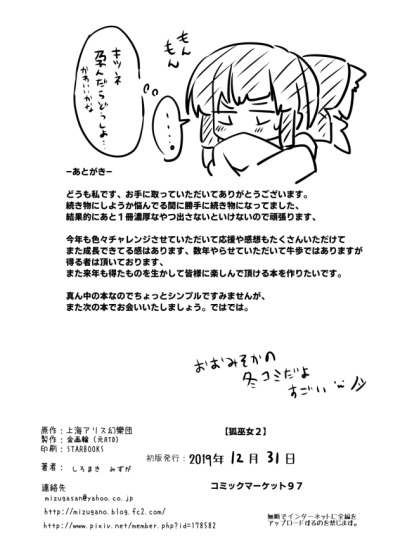 もんもん
キツネ
孕んだらどうしよ…
かわいいかな
・・・。
－あとがき－
どうも私です、お手に取っていただいてありがとうございます。
続き物にしようか悩んでる間に勝手に続き物になってました、
結果的にあと１冊濃厚なやつ出さないといけないので頑張ります、
今年も色々チャレンジさせていただいて応援や感想もたくさんいただけて
また成長できてる感はあります、数年やらせていただいて牛歩ではありますが
得る者は頂いております、
また来年も得たものを生かして皆様に楽しんで頂ける本を作りたいです。
真ん中の本なのでちょっとシンプルですみませんが、
また次の本でお会いいたしましょう。ではでは。
おおみそかの
冬コミだよ
すごい
原作：上海アリス幻樂団
製作：金画輪（元RTD）
印刷：STARBOOKS
著者： しろまき みずが
連絡先
mizugasan@yahoo.co.jp
http://mizugano.blog.fc2.com/
http://www.pixiv.net/member.php?id=178582
【狐巫女２】
初版発行：2019年 12月 31日
コミックマーケット９７
無断でインターネットに全編を
アップロードするのを禁じます。